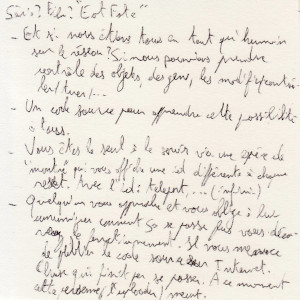 Série? Film? "Eot Fate"
- Et si nous étions tous en tant qu'humain
sur le réseau? Si nous pouvions prendre
contrôle des objets, des gens, les modifier/contrô
ler/tuer/...
- Un code source pour apprendre cette possibilité
à tous.
- Vous êtes le seul à le savoir via une espèce de
"montre" qui vous affiche une id différente à chaque
reset. Avec l'id: teleport, ... (infini)
- Quelqu'un vous approche et vous oblige à lui
comment ça se passe plus vous
le fonctionnement. Il vous menace
de publier le code source sur Internet.
Chose qui finit par se passer. A ce moment
cette personne meurt.